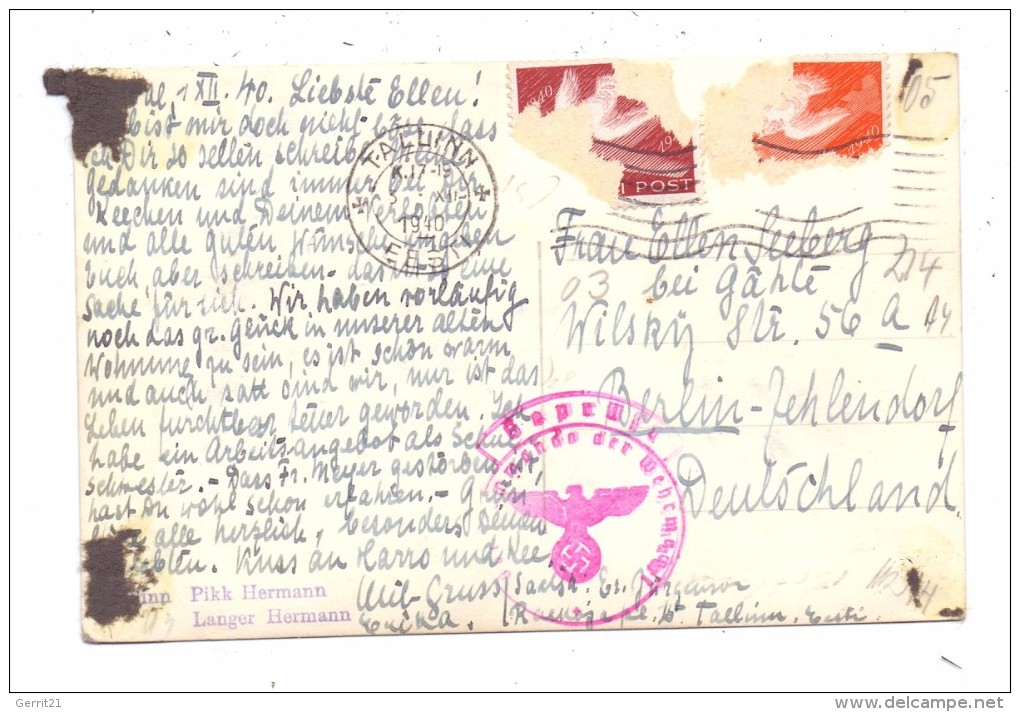 1 XII. 40. Liebste Ellen!
bist mir doch nicht böse, dass
ich Dir so selten schreibe, meine
gedanken sind immer bei Dir
Keechen und Deinem Verlobten
und alle guten Wünsche umgeben
Euch, aber schreiben - das ist eine
Sache für sich. Wir haben vorläufig
noch das gr. Glück in unserer alten
Wohnung zu sein, es ist schön warm
und auch satt sind wir, nur ist das
Leben furchtbar teuer geworden. Ich
habe ein Arbeitsangebot als Schul-
schwester. - Dass Fr. Meyer gestorben ist,
hast Du wohl schon erfahren. - Grüss
alle herzlich, besonders Deinen
Verlobten. Kuss an Harro und Kee
Mit Gruss
Erika.
Pikk Hermann
Langer Hermann
TALLINN
K.17-18
3 XII
1940
EESTI
1940
POST
1940
Frau Ellen Seeberg
bei Gähte
Wilsky Str. 56 a
Berlin-Zehlendorf
Deutschland.
03
05
224
Geprüft
der Wehrmacht
Saatja: Er. Jürgenson
Tallinn, Eesti
Gerrit21
www.delcampe.net